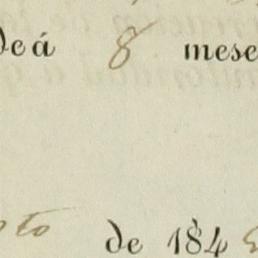 de á 8 mese
to de 184